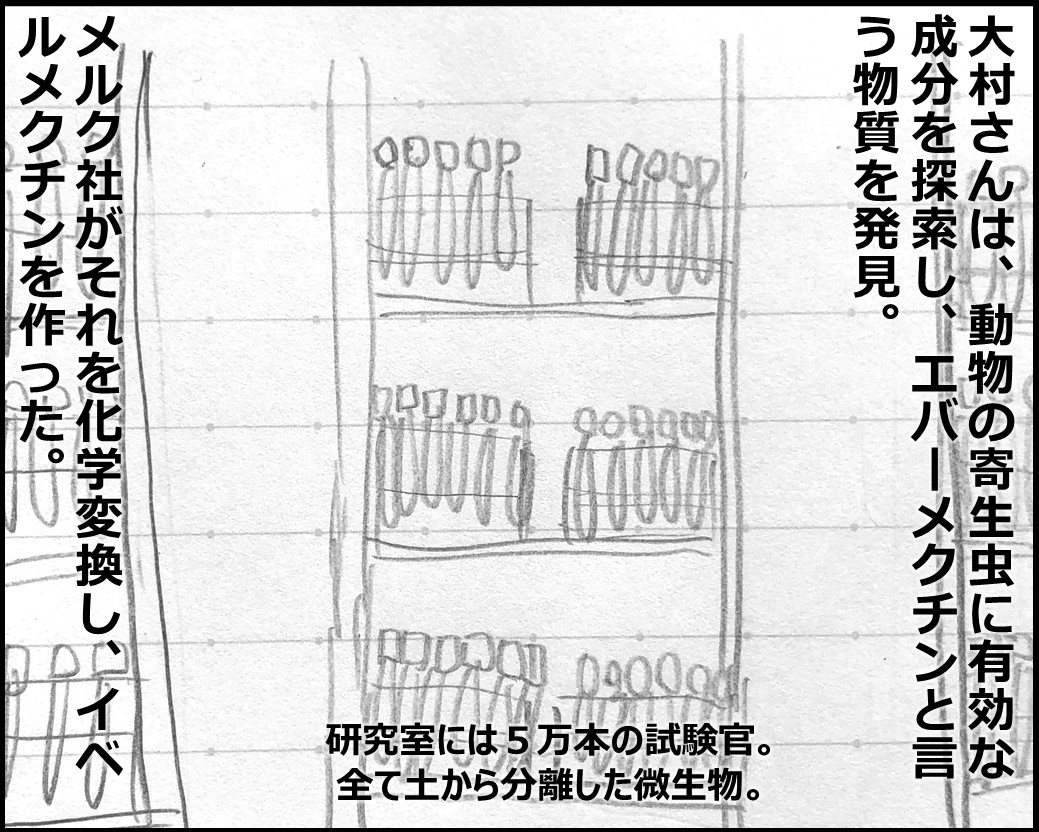 大村さんは、動物の寄生虫に有効な
成分を探索し、エバーメクチンと言
う物質を発見。
メルク社がそれを化学変換し、イベ
ルメクチンを作った。
研究室には５万本の試験官。
全て土から分離した微生物。